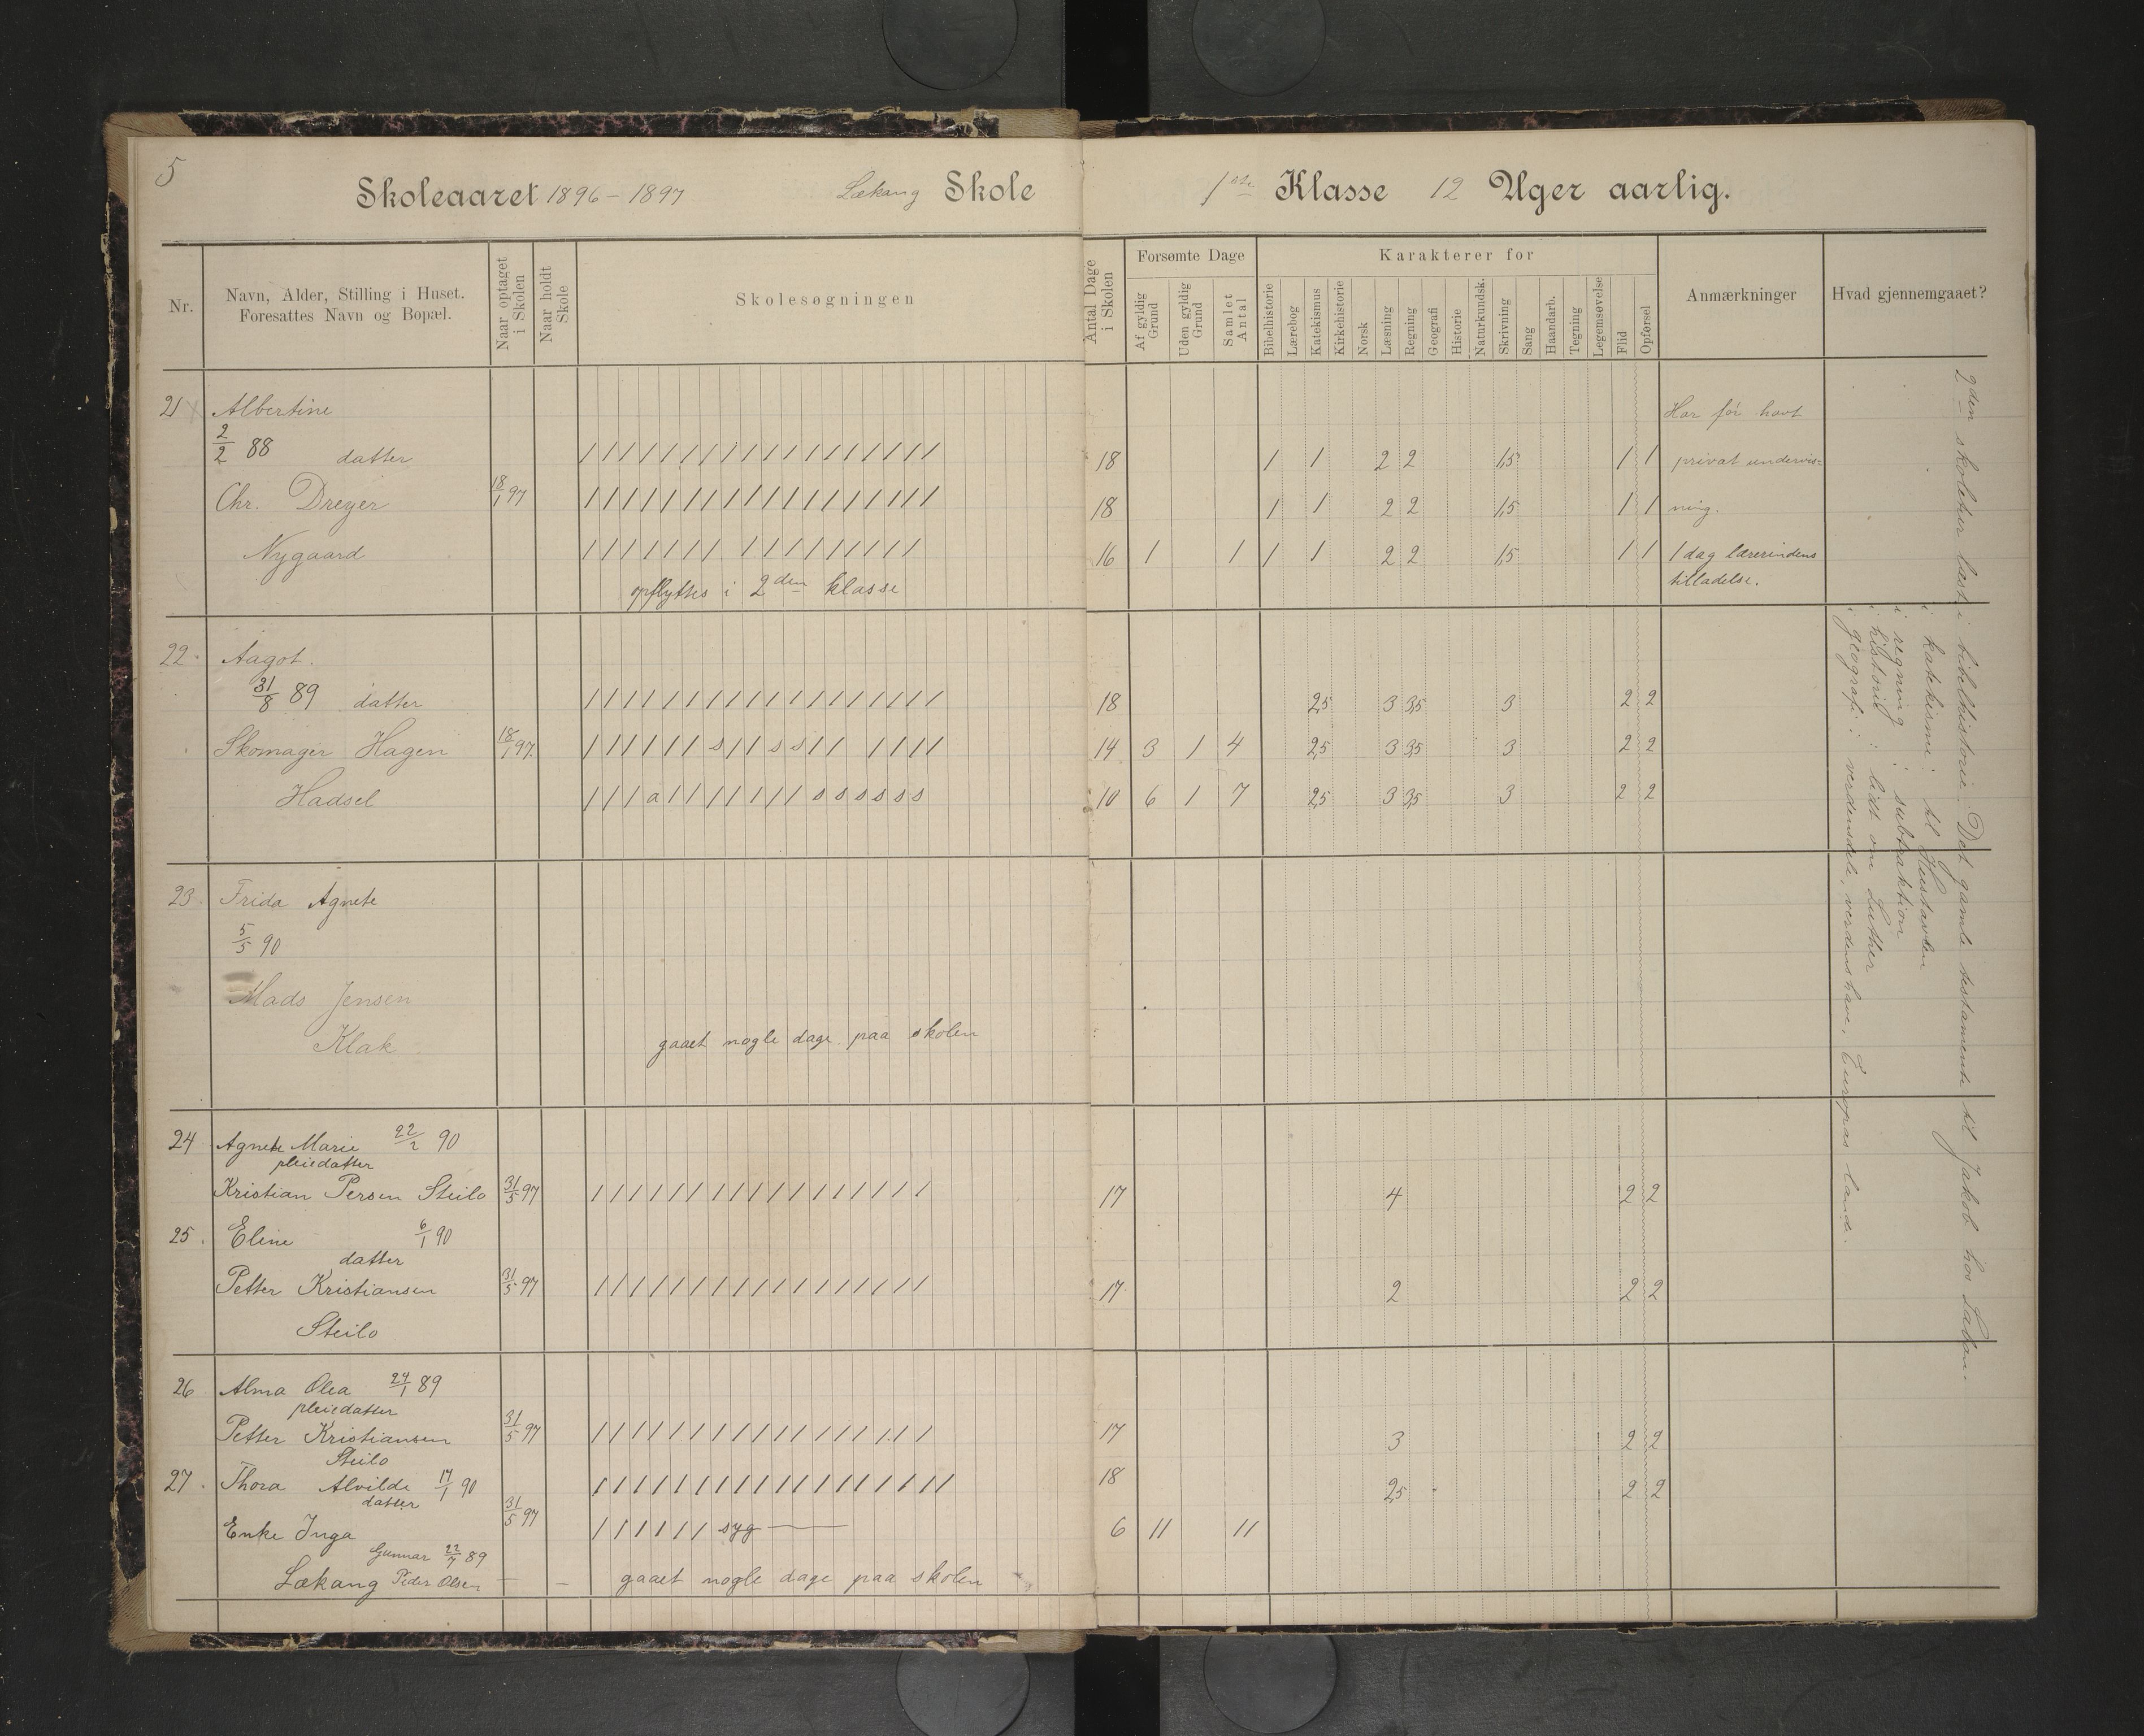 5
Skoleaaret 1896-1897 Lekang Skole 1ste Klasse 12 Uger aarlig.
Nr.
Navn, Alder, Stilling i Huset.
Foresattes Navn og Bopæl.
Naar optaget
i Skolen
Naar holdt
Skole
Skolesøgningen
Antal Dage
i Skolen
Forsømte Dage
Af gyldig
Grund
Uden gyldig
Grund
Samlet
Antal
Karakterer for
Bibelhistorie
Lærebog
Katekismus
Kirkehistorie
Norsk
Læsning
Regning
Geografi
Historie
Naturkundsk.
Skrivning
Sang
Haandarb.
Tegning
Legemsøvelse
Flid
Opførsel
Anmærkninger
Hvad gjennemgaaet?
21 Albertine Har før havt
2/2 88 datter / / / / / / / / / / / / / / / / / / 18 1 1 2 2 1,5 1 1 privat undervis=
Chr. Dreyer 18/1 97 / / / / / / / / / / / / / / / / / / 18 1 1 2 2 1,5 1 1 ning.
Nygaard / / / / / / / / / / / / / / / / 16 1 1 1 1 2 2 1,5 1 1 1 dag lærerindens
opflyttes i 2den klasse tilladelse.
22. Aagot.
31/8 89 datter / / / / / / / / / / / / / / / / / / 18 2,5 3 3,5 3 2 2
Skomager Hagen 18/1 97. / / / / / / s / / s s / / / / / / 14 3 1 4 2,5 3 3,5 3 2 2
Hadsel / / / a / / / / / / / s s s s s s 10 6 1 7 2,5 3 3,5 3 2 2
23. Frida Agnete
5/5 90
Mads Jensen
Klak gaaet nogle dage paa skolen
24 Agnete Marie 22/2 90
pleiedatter
Kristian Persen Steilo 31/5 97 / / / / / / / / / / / / / / / / / 17 4 2 2
25. Eline 6/1 90
datter
Petter Kristiansen 31/5 97 / / / / / / / / / / / / / / / / / 17 2 2 2
Steilo
26 Alma Olea 24/1 89
pleiedatter
Petter Kristiansen 31/5 97 / / / / / / / / / / / / / / / / / 17 3 2 2
Steilo
27. Thora Alvilde 17/1 90 / / / / / / / / / / / / / / / / / / 18 2,5 2 2
datter
Enke Inga 31/5 97 / / / / / / syg — 6 11 11
Gunnar 22/7 89
Lækang Peder Olsen — — gaaet nogle dage paa skolen
2den skoleuker læst i bibelhistorie: Det gamle testamente til Jakob hos Laban.
i katekisme: til Hustavlen
i regning: subtraktion
i historie: lidt om Luther
i geografi: verdensdele, verdenshave, Europas lande.